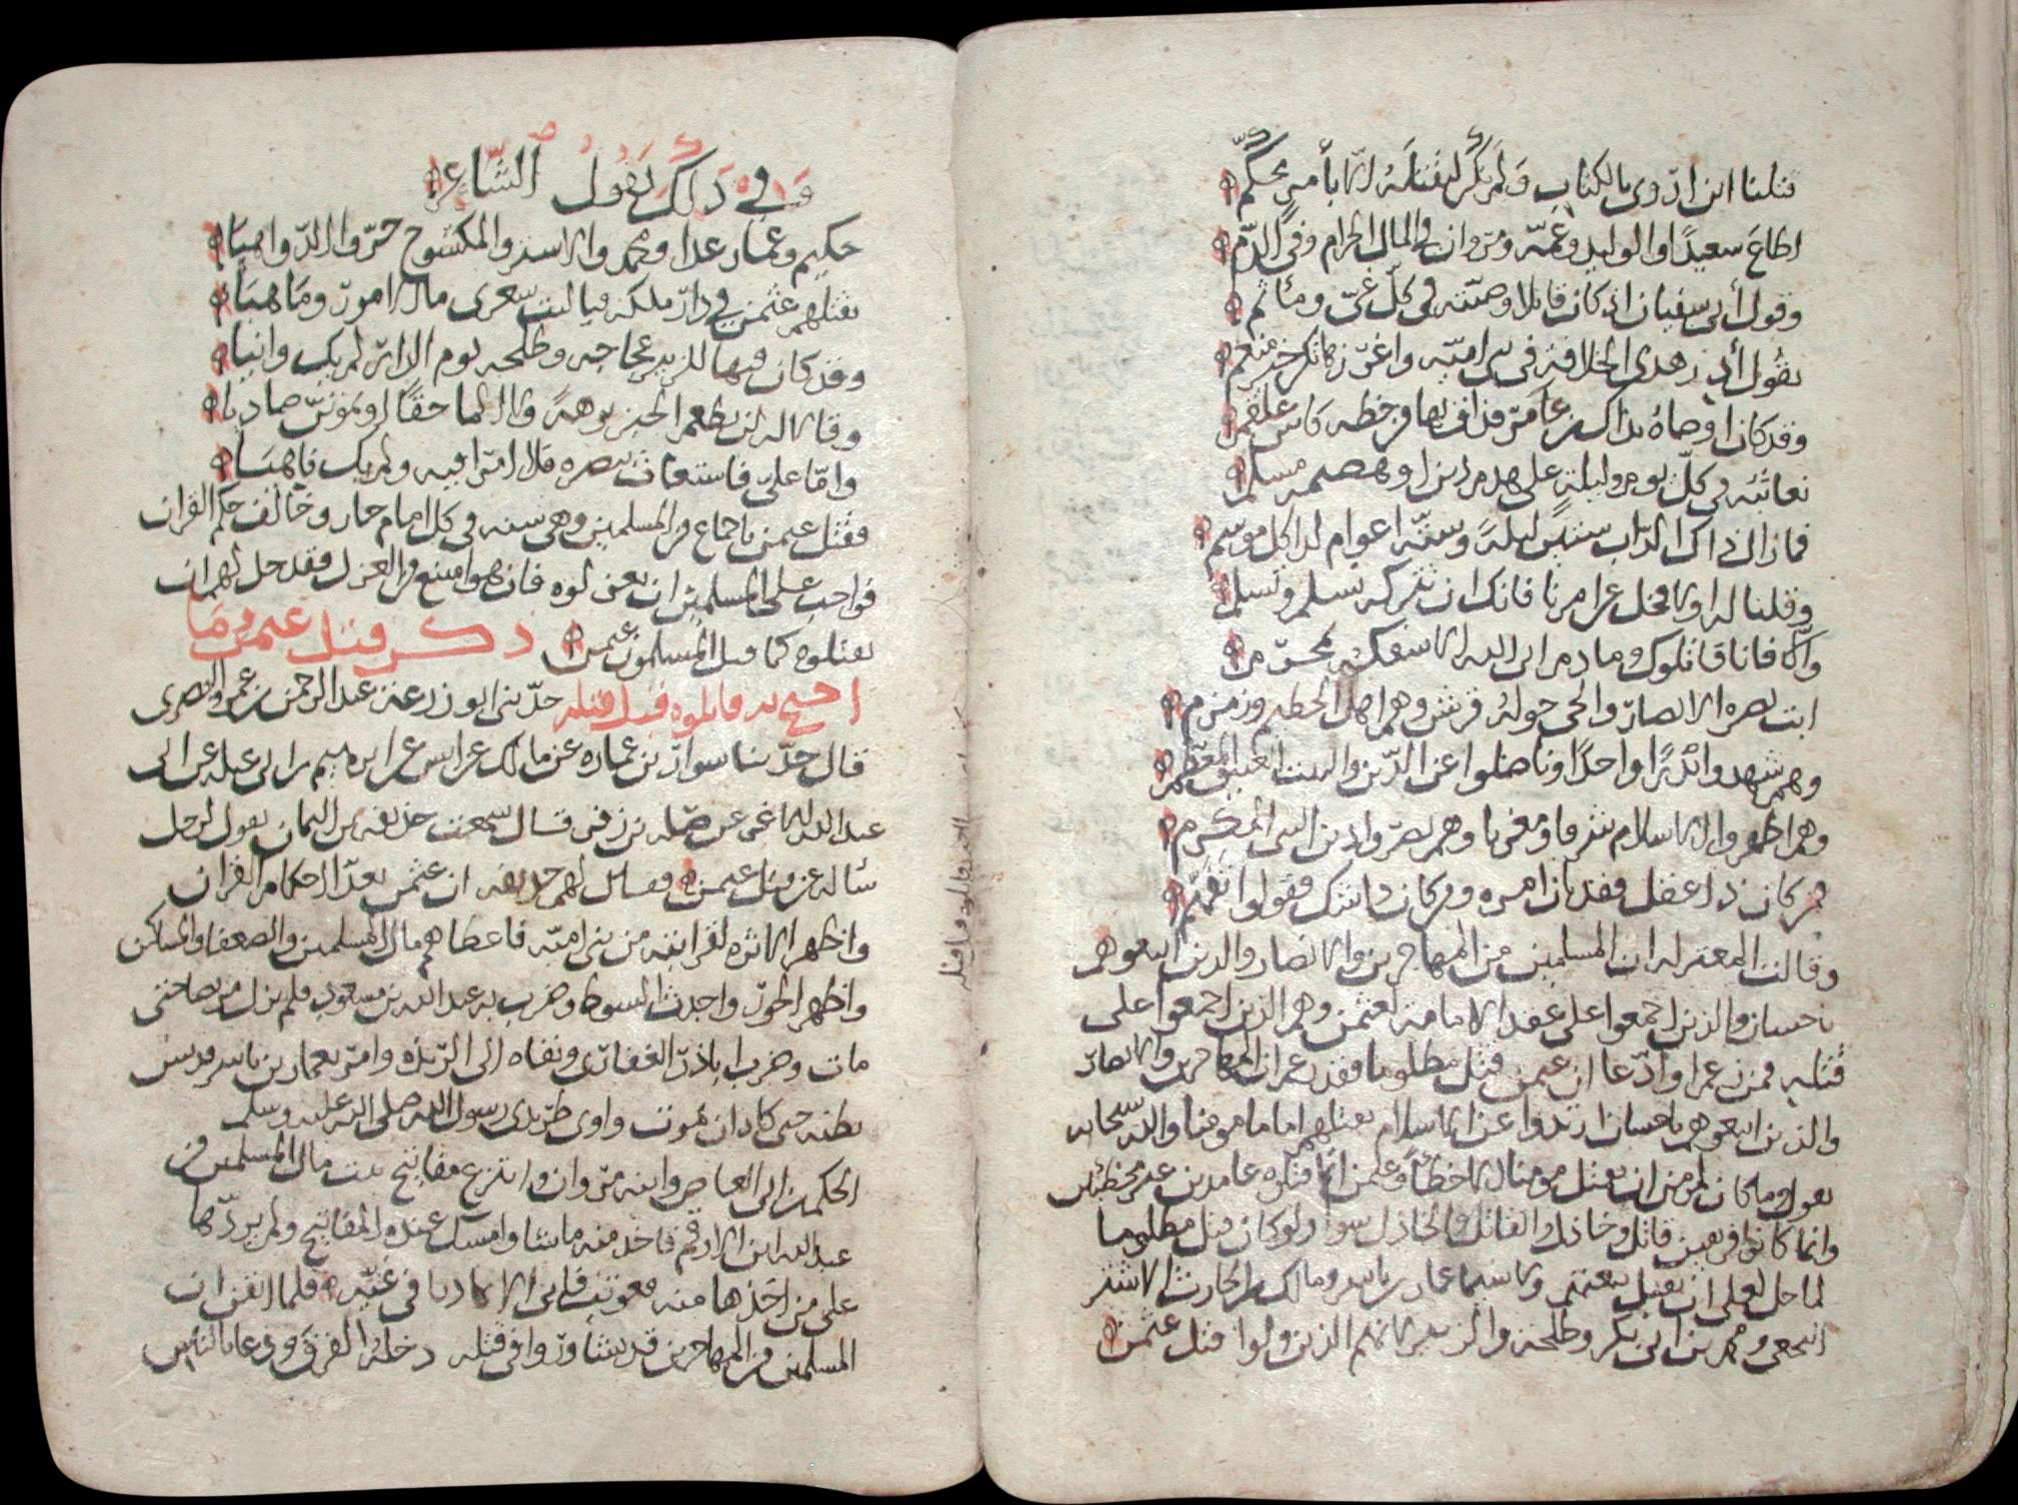 قتلنا ابن اروى بالكتاب ولم نكن لنقتله الا بأمر محكم
اطاع سعيدا والوليد وعمه ومروان في المال الحرام وفي الدم
وقول أبي سفيان اذ كان قائلا وصيته في كل غي ومأثم
يقول أدر هذي الخلافة في بني امية
وقد كان اوصاه بذاك كاس علقم
نعاتبه في كل يوم وليلة على هدم دين او هضمه مسلم
فما زال ذاك الداب ستين ليلة وستة اعوام لدا كل موسم
وقلنا له اولا فخل عن امرنا فانك ان تتركه تسلم وتسلم
والا فانا قاتلوك وما دم الى الله الا سفكه بمحرم
ابت نصره الانصار والحي حوله قريش وهم اهل الحطيم وزمزم
وهم شهدوا بدرا واحدا وناضلوا عن الدين والبيت العتيق المعظم
وهم اظهروا الاسلام شرقا ومغربا وهم نصروا دين النبي المكرم
فمن كان ذا عقل فقد بان امره ومن كان ذا شك فقولوا تفهم
وقالت المعتزلة ان المسلمين من المهاجرين والانصار والذين اتبعوهم
باحسان والذين اجمعوا على عقد الامامة لعثمن وهم الذين اجمعوا على
قتله فمن زعم او ادعا ان عثمن قتل مظلوما فقد زعم ان المهاجرين والانصار
والذين اتبعوهم باحسان ارتدوا عن الاسلام بقتلهم اماما مومنا والله سبحانه
يقول وما كان لمومن ان يقتل مومنا الا خطأ وعثمن انما قتلوه عامدين غير مخطئين
وانما كانوا فريقين قاتل وخاذل والقاتل والخاذل سوا ولو كان قتل مظلوما
لما حل لعلي ان يقتل بعثمن ولا سيما عمار بن ياسر ومالك بن الحارث الاشتر
النخعي ومحمد بن ابي بكر وطلحة والزبير لانهم الذين ولوا قتل عثمن
وفي ذلك يقول الشاعر
حكيم وعمار غدا ومحمد والاشتر والمكشوح جروا الدواهيا
بقتلهم عثمن في دار ملكه فيا ليت شعري مال امور وما هيا
وقد كان فيها للزبير عجاجة وطلحة يوم الدار لم يك وانيا
وقالا له لن تطعم الخبز بوهة ولا الما حقا او تموتن صاديا
واما علي فاستغاث بنصره فلا امرا فيه ولم يك ناهيا
فقتل عثمن باجماع من المسلمين وهي سنة في كل امام جار وخالف حكم القران
فواجب على المسلمين ان يعزلوه فان هو امتنع من العزل فقد حل لهم ان
يقتلوه كما قتل المسلمون عثمن ذكر قتل عثمن وما
احتج به قاتلوه قبل قتله حدثني ابو زرعة عبد الرحمن بن عمرو النصري
قال حدثنا سوار بن عمارة عن مالك عن ابراهيم بن ابي عبلة عن ابي
عبد الله عن صلة بن زفر قال سمعت حذيفة بن اليمان يقول لرجل
سأله عن قتل عثمن فقال لهم حذيفة ان عثمن بدل احكام القران
واظهر الاثرة لقرابته من بني امية فاعطاهم مال المسلمين والضعفا والمساكين
واظهر الجور واحدث السوط وضرب به عبد الله بن مسعود فلم يزل مريضا حتى
مات وضرب اباذر الغفاري ونفاه الى الربذة وامر بعمار بن ياسر فديس
بطنه حتى كاد ان يموت واوى طريدي رسول الله صلى الله عليه وسلم
الحكم بن ابي العاص وابنه مروان وانتزع مفاتيح بيت مال المسلمين من
عبد الله ابن الارقم فاخذ منه ما شا وامسك عنده المفاتيح ولم يردها
على من اخذها منه فعوتب فابى الا تماديا في غيه فلما ايقن ان
المسلمين من المهاجرين قد تشاوروا في قتله دخله الفرق ودعا بالناس